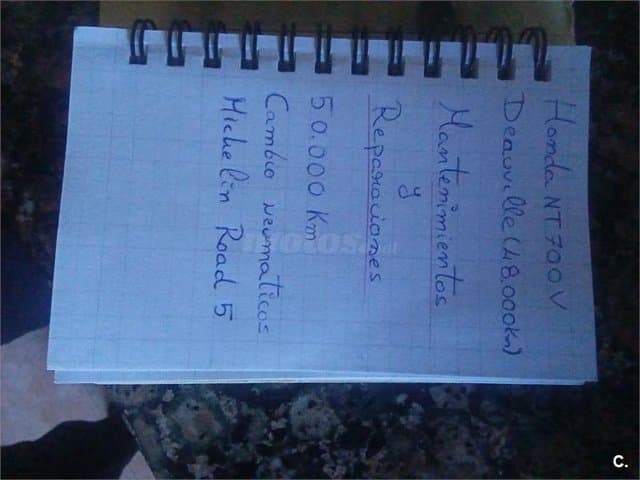 Honda NT700V
Deauville (48.000Km)
Mantenimientos
y
Reparaciones
50.000 Km
Cambio neumaticos
Michelin Road 5
motos.net
C.